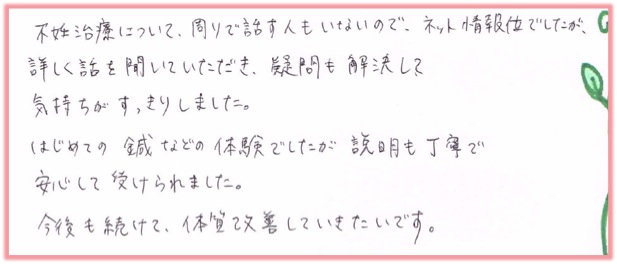 不妊治療について、周りで話す人もいないので、ネット情報位でしたが、
詳しく話を聞いていただき、疑問も解決して
気持ちがすっきりしました。
はじめての鍼などの体験でしたが説明も丁寧で
安心して受けられました。
今後も続けて、体質改善していきたいです。